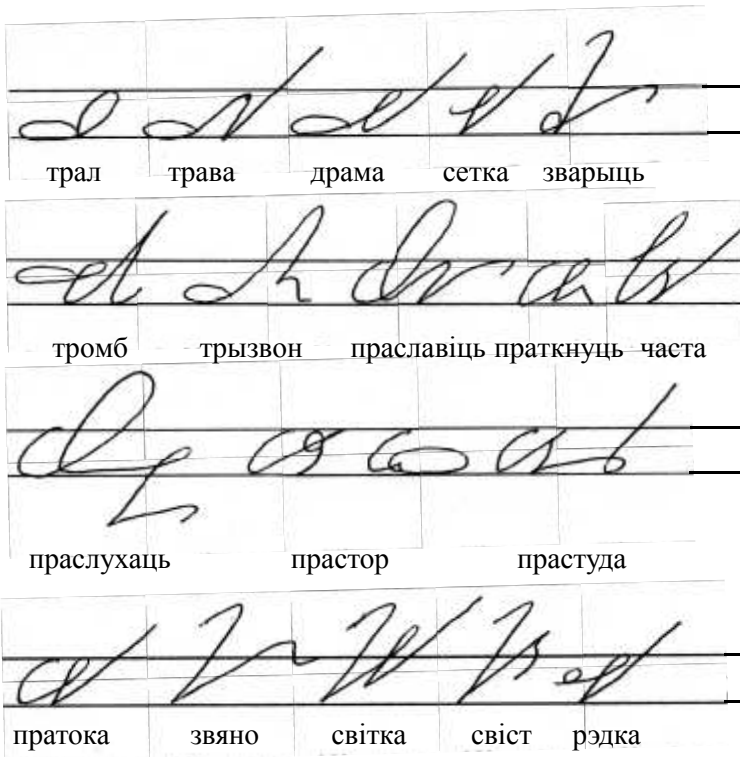 трал трава драма сетка зварыць
тромб трызвон праславіць праткнуць часта
праслухаць прастор прастуда
пратока звяно світка свіст рэдка